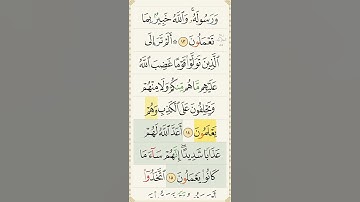 وَرَسُولَهُۥۚ وَٱللَّهُ خَبِيرُۢ بِمَا
تَعْمَلُونَ ١٣ ۞ أَلَمْ تَرَ إِلَى
ٱلَّذِينَ تَوَلَّوْا۟ قَوْمًا غَضِبَ ٱللَّهُ
عَلَيْهِم مَّا هُم مِّنكُمْ وَلَا مِنْهُمْ
وَيَحْلِفُونَ عَلَى ٱلْكَذِبِ وَهُمْ
يَعْلَمُونَ ١٤ أَعَدَّ ٱللَّهُ لَهُمْ
عَذَابًا شَدِيدًاۖ إِنَّهُمْ سَآءَ مَا
كَانُوا۟ يَعْمَلُونَ ١٥ ٱتَّخَذُوٓا۟